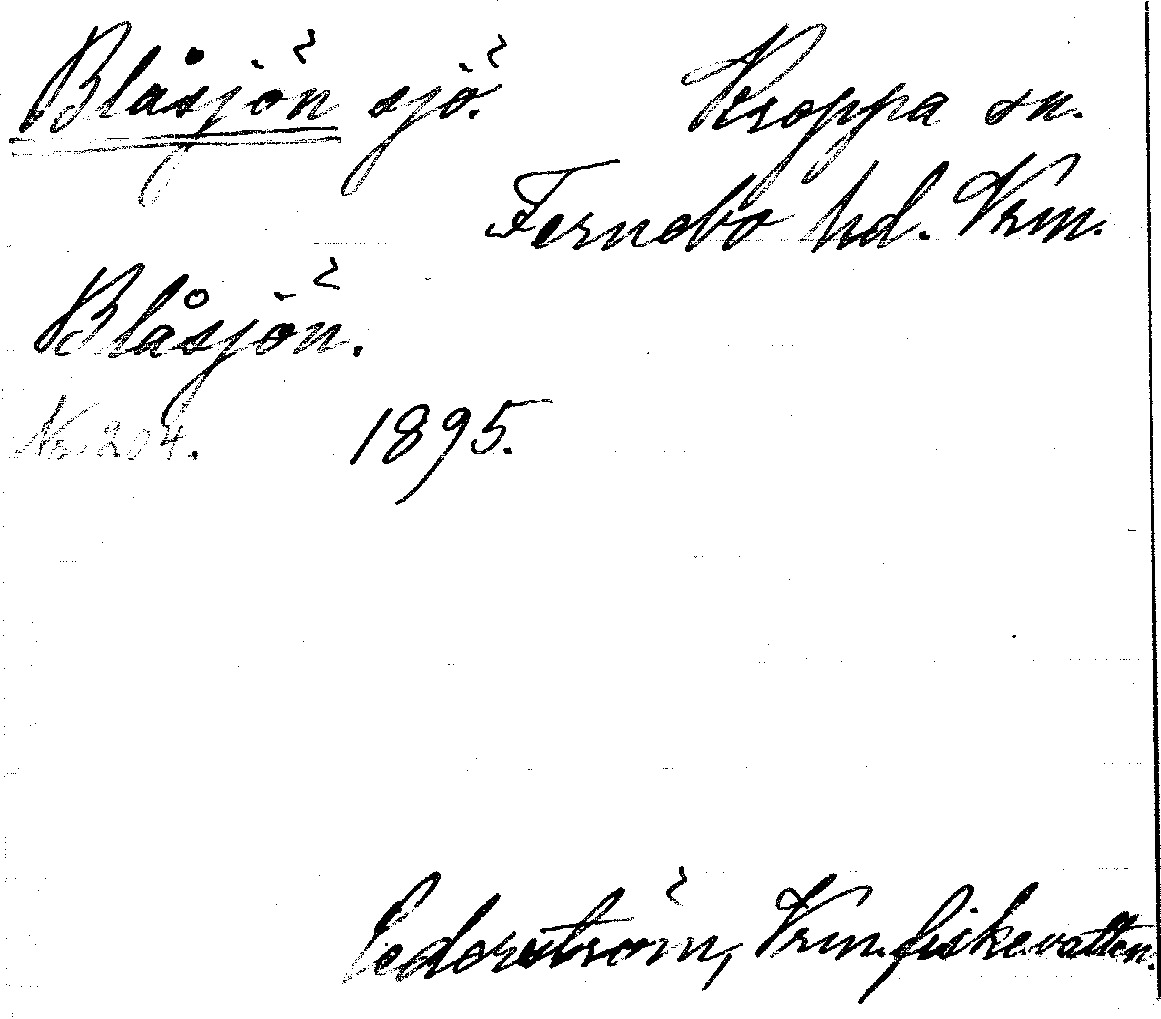 Blåsjön sjö. Kroppa sn.
Fernebo hd. Vrm.
Blåsjön.
No. 204. 1895.
Cederström, Vrm. fiskevatten.